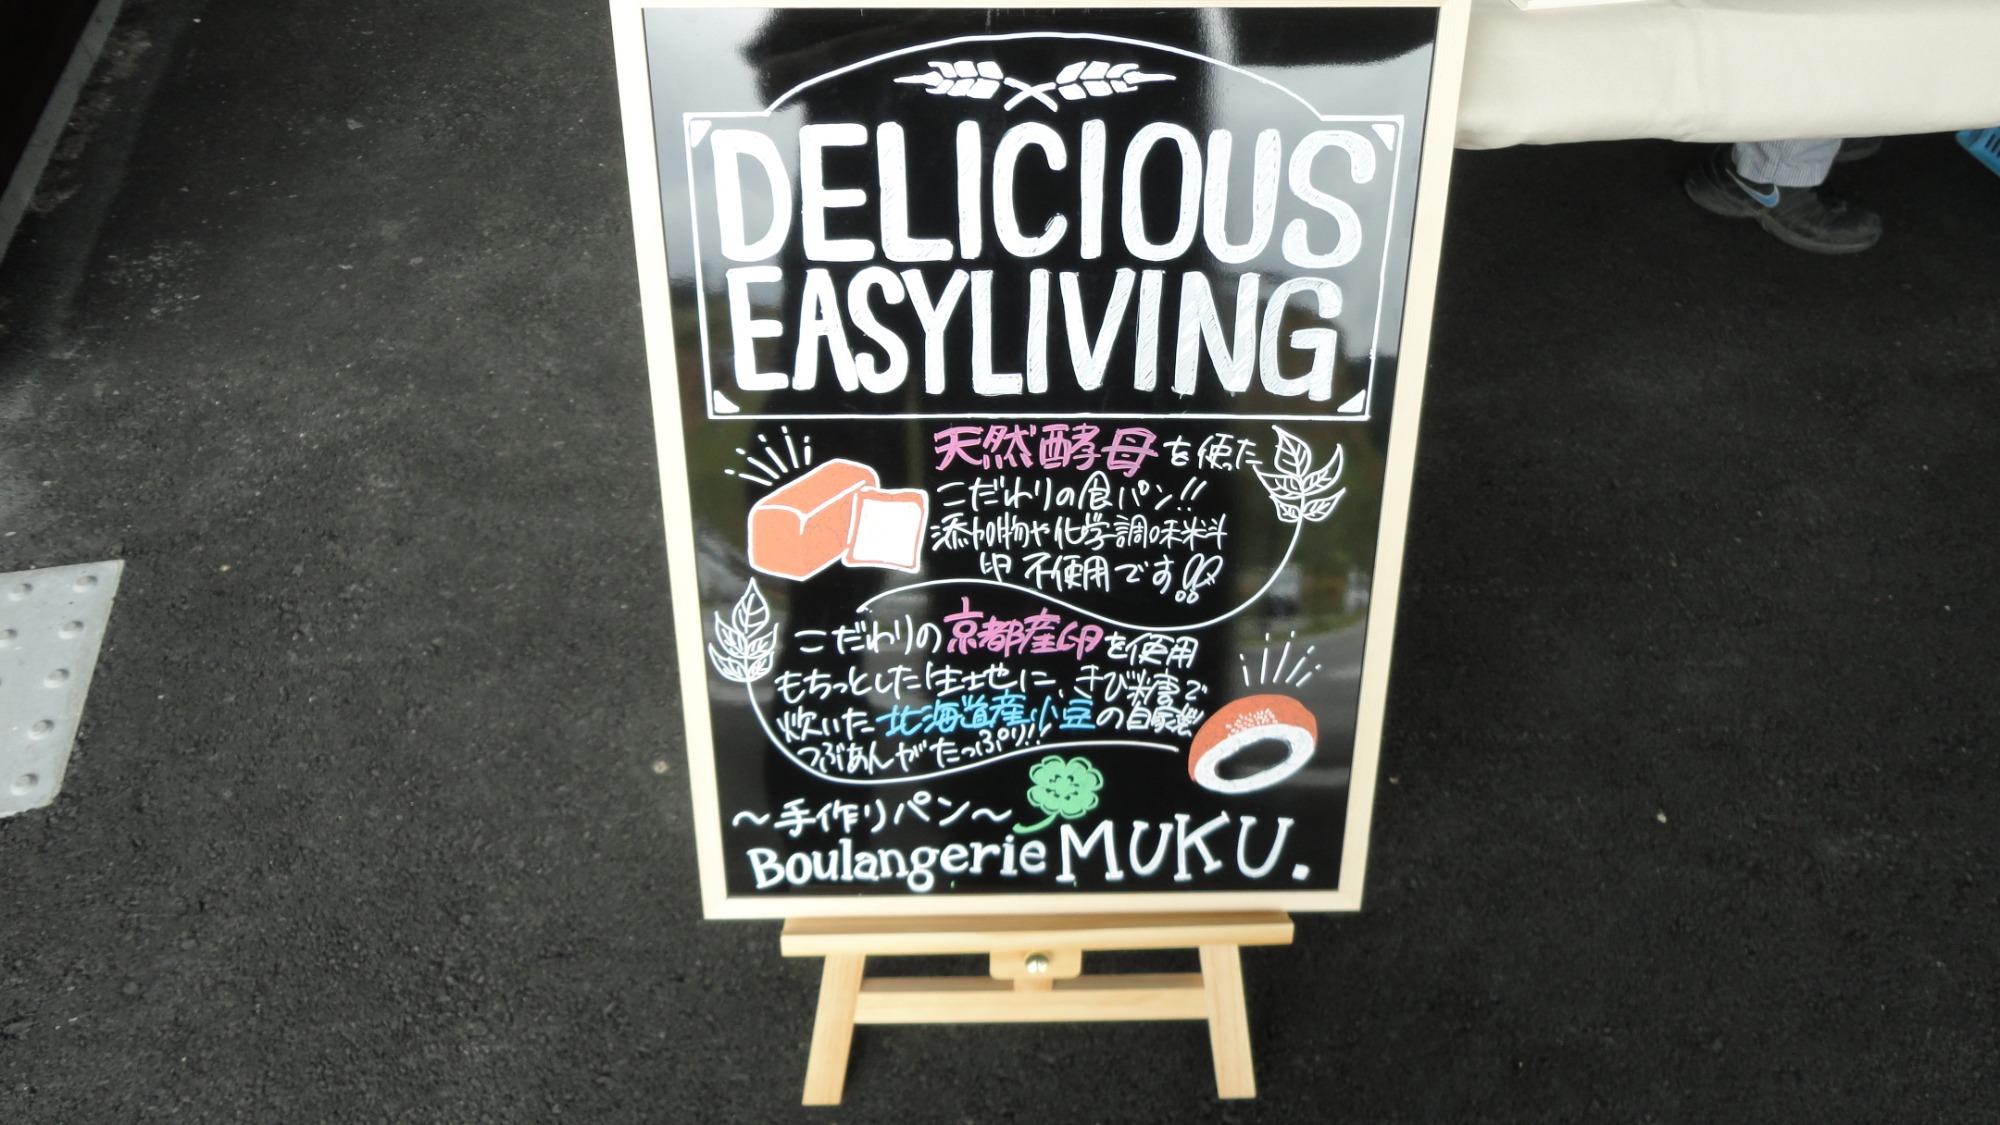 DELICIOUS
EASYLIVING
天然酵母を使った
こだわりの食パン!!
添加物や化学調味料
卵 不使用です!!
こだわりの京都産卵を使用
もちっとした生地に、きび糖で
炊いた北海道産小豆の自家製
つぶあんがたっぷり!!
～手作りパン～
Boulangerie MUKU.